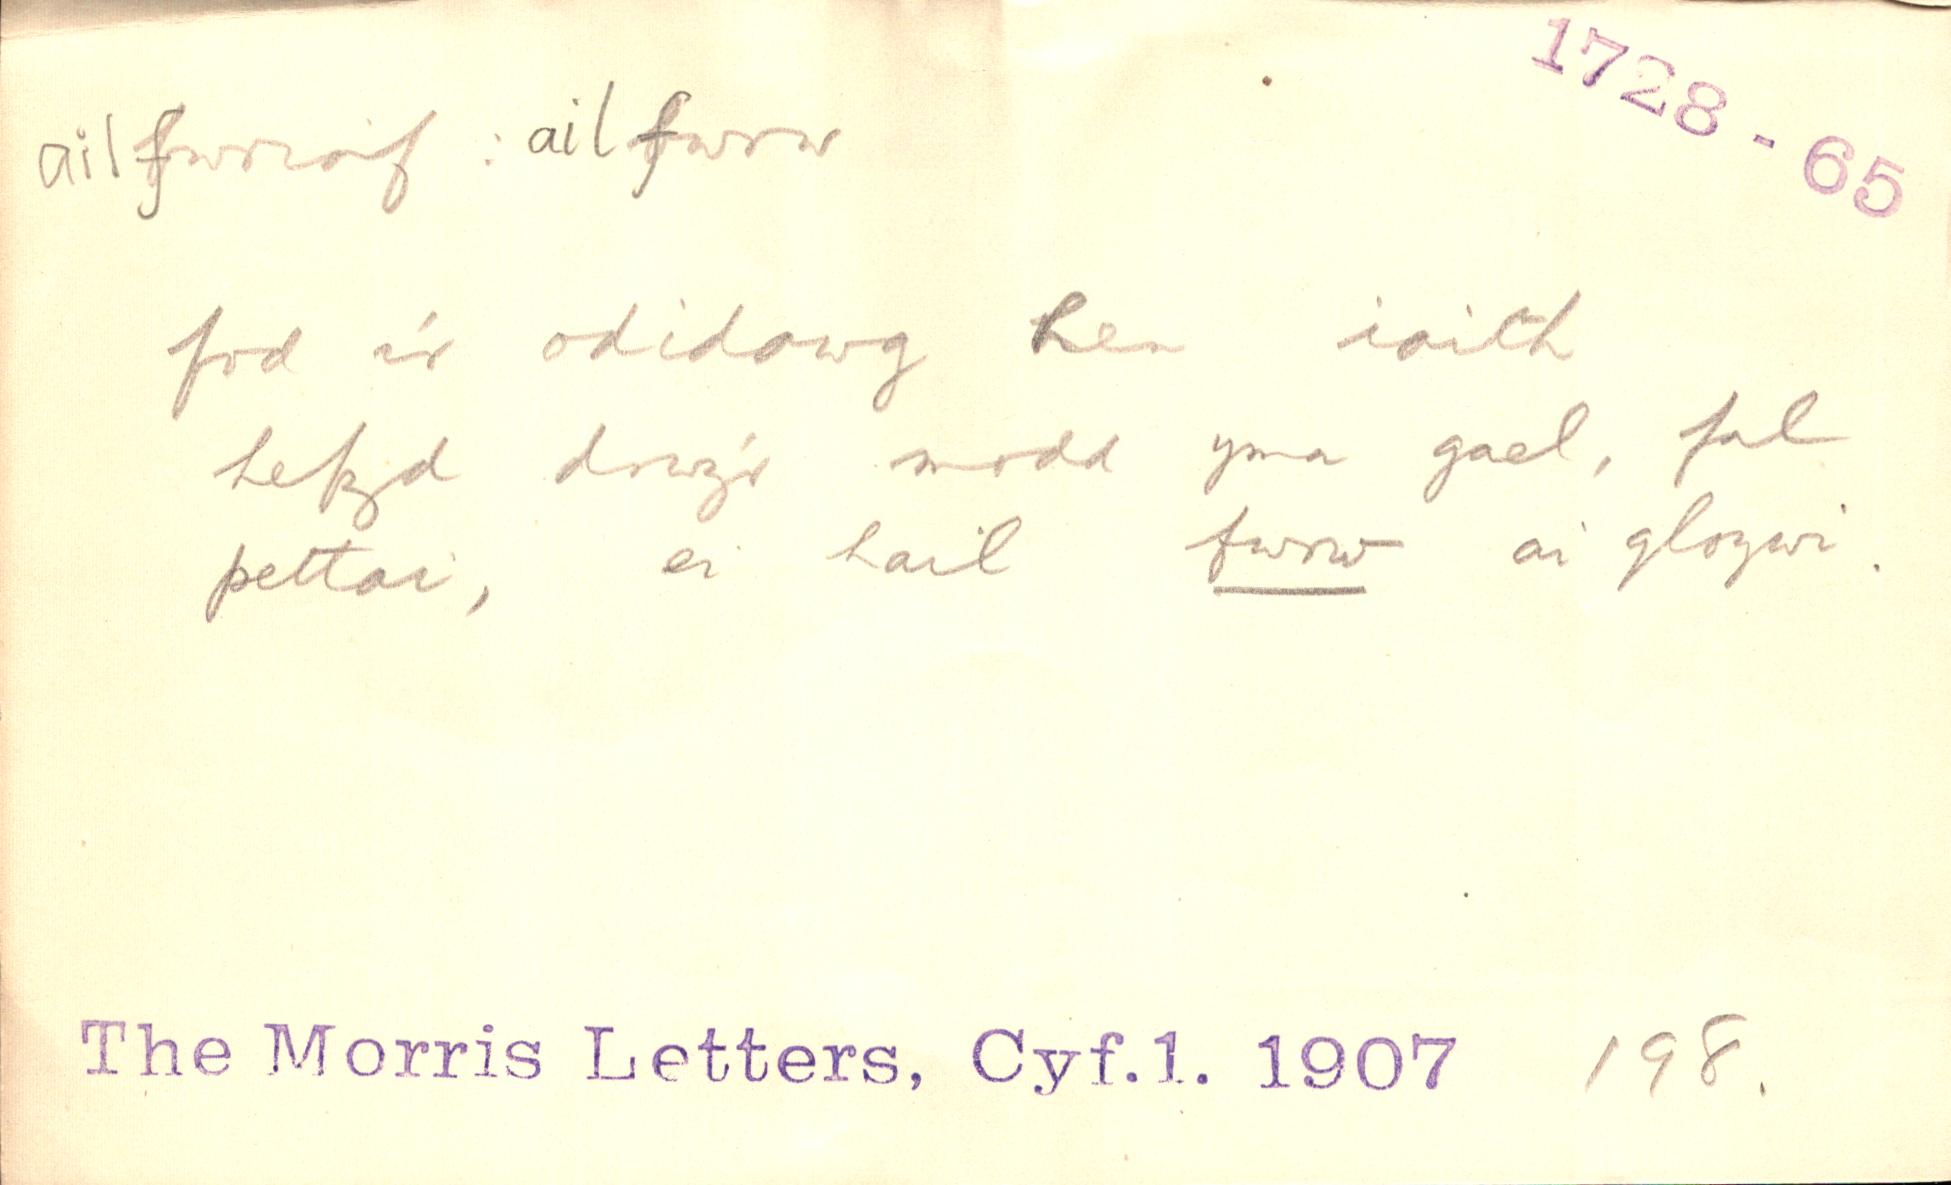 1728 - 65
ailfwriaf : ailfwrw
fod i'r odidawg hen iaith
hefyd drwy'r modd yma gael, fal
pettai, ei hail fwrw ai gloywi.
The Morris Letters, Cyf.1. 1907 198.